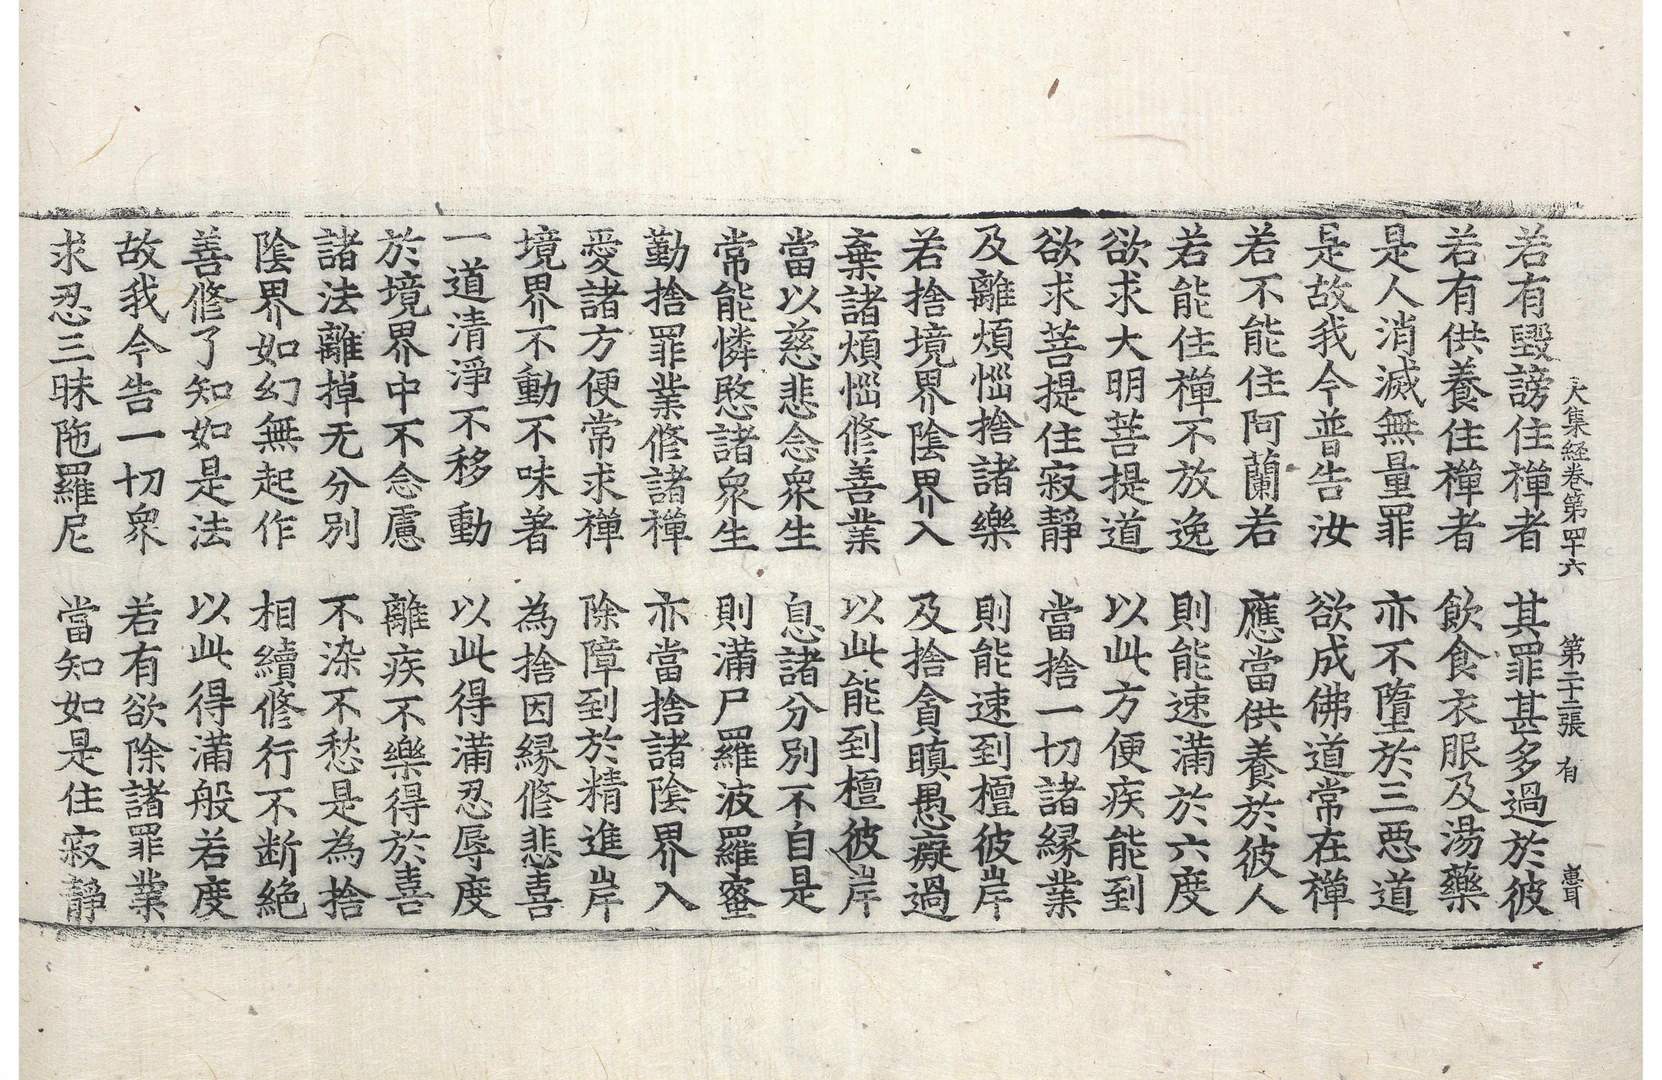 大集経巻第四十六 第二十二張 有 惠耳
若有毀謗住禪者 其罪甚多過於彼
若有供養住禪者 飲食衣服及湯藥
是人消滅無量罪 亦不墮於三惡道
是故我今普告汝 欲成佛道常在禪
若不能住阿蘭若 應當供養於彼人
若能住禪不放逸 則能速滿於六度
欲求大明菩提道 以此方便疾能到
欲求菩提住寂靜 當捨一切諸縁業
及離煩惱捨諸樂 則能速到檀彼岸
若捨境界陰界入 及捨貪瞋愚癡過
棄諸煩惱修善業 以此能到檀彼岸
當以慈悲念衆生 息諸分別不自是
常能憐愍諸衆生 則滿尸羅波羅蜜
勤捨罪業修諸禪 亦當捨諸陰界入
愛諸方便常求禪 除障到於精進岸
境界不動不味著 為捨因縁修悲喜
一道清淨不移動 以此得滿忍辱度
於境界中不念慮 離疾不樂得於喜
諸法離掉无分別 不染不愁是為捨
陰界如幻無起作 相續修行不断絶
善修了知如是法 以此得滿般若度
故我今告一切衆 若有欲除諸罪業
求忍三昧陁羅尼 當知如是住寂靜